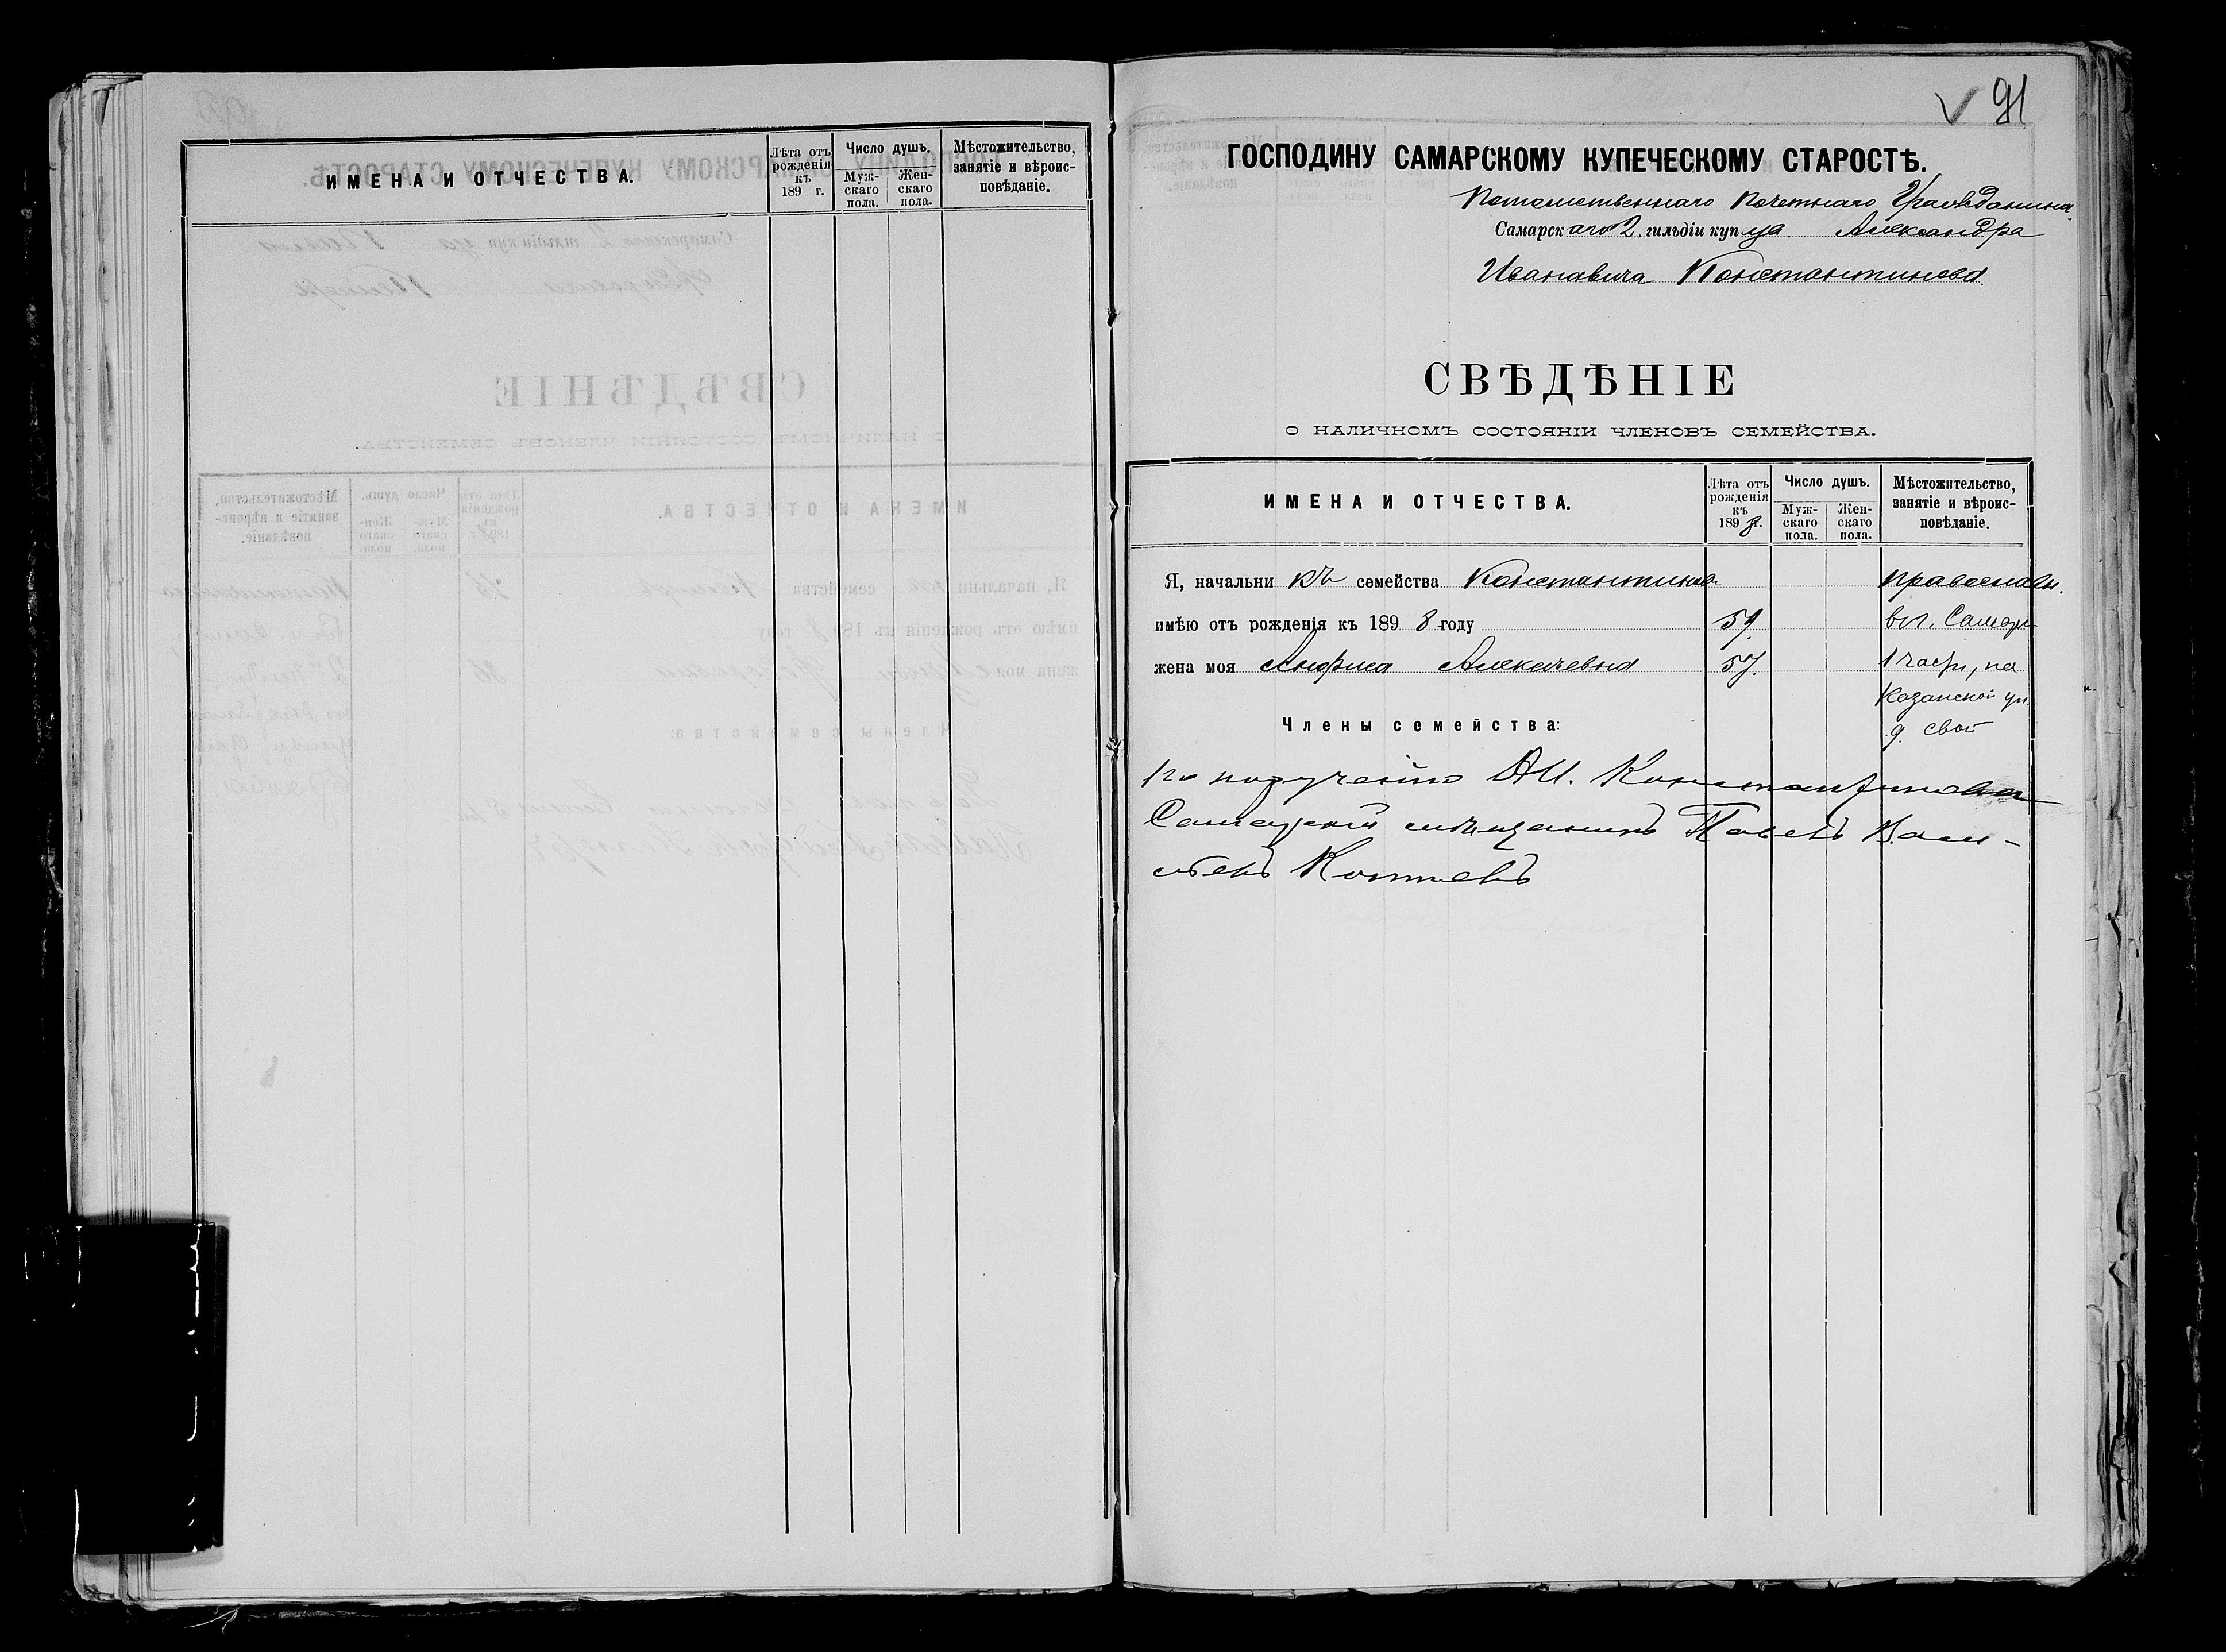 ИМЕНА И ОТЧЕСТВА.
Лѣта отъ рожденія къ 189 г.
Число душъ.
Муж-скаго пола.
Жен-скаго пола.
Мѣстожительство, занятіе и вѣроис-повѣданіе.
91
ГОСПОДИНУ САМАРСКОМУ КУПЕЧЕСКОМУ СТАРОСТѢ.
Потомственнаго Почетнаго Гражданина
Самарскаго 2 гильдіи купца Александра
Ивановича Константинова
СВѢДѢНІЕ
О НАЛИЧНОМЪ СОСТОЯНІИ ЧЛЕНОВЪ СЕМЕЙСТВА.
ИМЕНА И ОТЧЕСТВА.
Лѣта отъ рожденія къ 1898 г.
Число душъ.
Муж-скаго пола.
Жен-скаго пола.
Мѣстожительство, занятіе и вѣроис-повѣданіе.
Я, начальникъ семейства Константинов православн.
имѣю отъ рожденія къ 1898 году 59 в г. Самар
жена моя Анфиса Алексѣевна 57 1 части, на
Казанской ул.
Члены семейства: д. свой
по порученію А И. Константинова
Самарскій мѣщанинъ Павелъ Васи-
льевъ